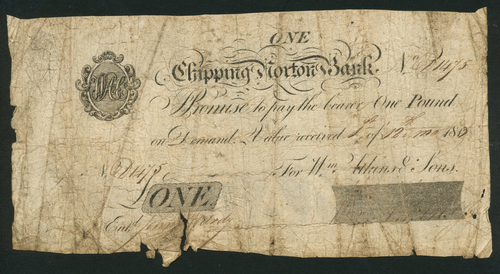 ONE
Chipping Norton Bank. No
I Promise to pay the bearer One Pound
on Demand. Value received of 180
No For Wm. Atkins & Sons.
ONE.
Entd.